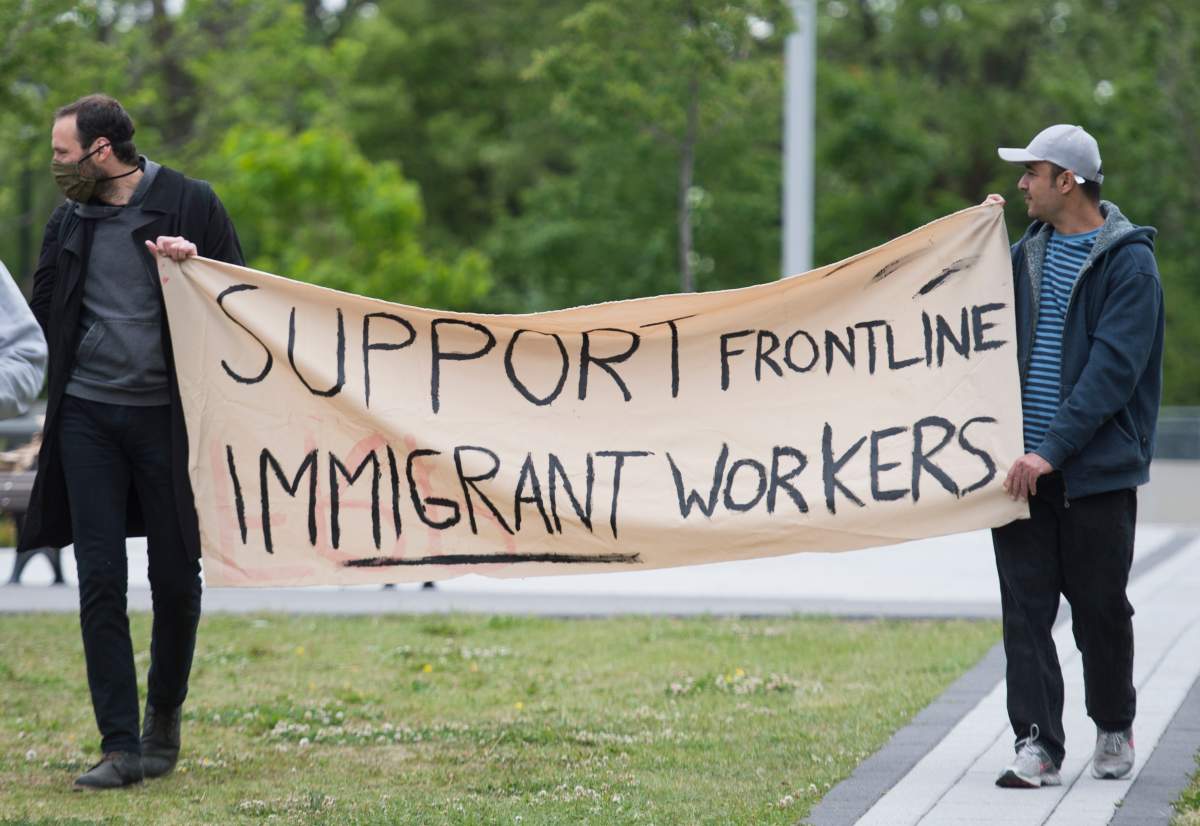 SUPPORT FRONTLINE
IMMIGRANT WORKERS